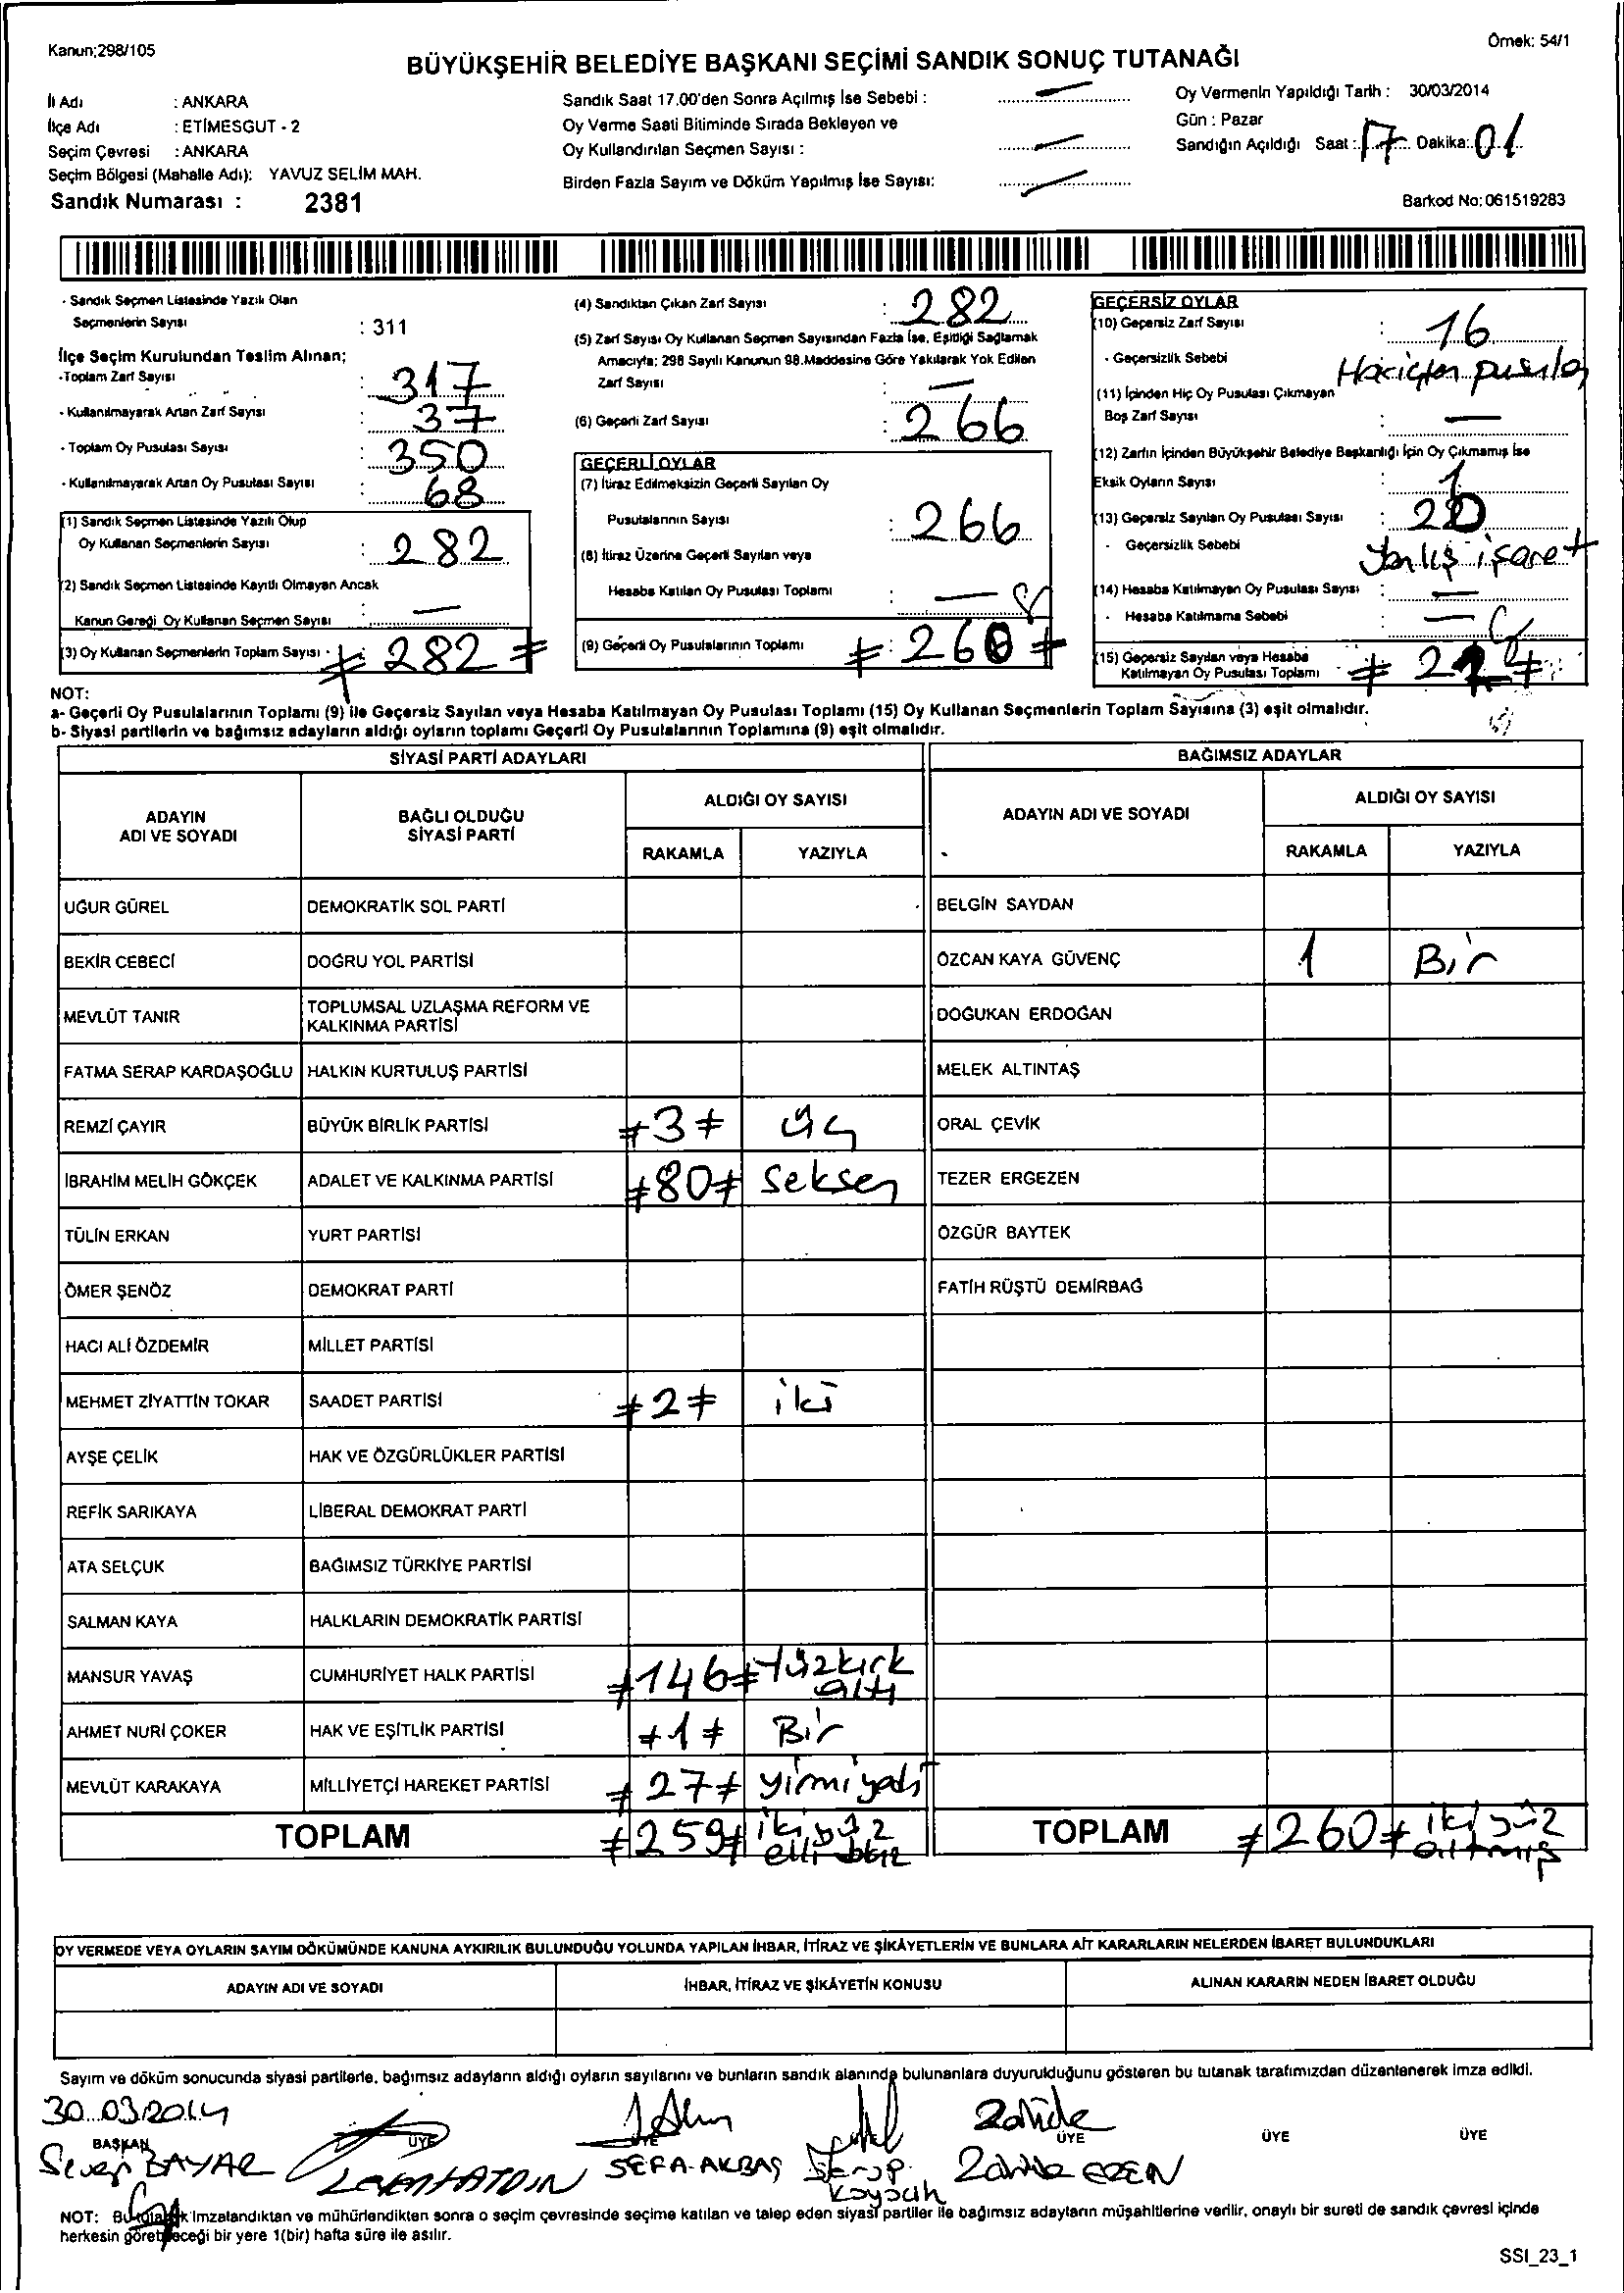 Kanun;298/105
Örnek: 54/1
BÜYÜKŞEHİR BELEDİYE BAŞKANI SEÇİMİ SANDIK SONUÇ TUTANAĞI
İl Adı : ANKARA
İlçe Adı : ETİMESGUT - 2
Seçim Çevresi : ANKARA
Seçim Bölgesi (Mahalle Adı): YAVUZ SELİM MAH.
Sandık Numarası : 2381
Sandık Saat 17.00'den Sonra Açılmış İse Sebebi : —
Oy Verme Saati Bitiminde Sırada Bekleyen ve
Oy Kullandırılan Seçmen Sayısı : —
Birden Fazla Sayım ve Döküm Yapılmış İse Sayısı: —
Oy Vermenin Yapıldığı Tarih : 30/03/2014
Gün : Pazar
Sandığın Açıldığı Saat : 17 Dakika: 01
Barkod No: 061519283
- Sandık Seçmen Listesinde Yazılı Olan
Seçmenlerin Sayısı : 311
İlçe Seçim Kurulundan Teslim Alınan;
-Toplam Zarf Sayısı : 317
- Kullanılmayarak Artan Zarf Sayısı : 37
- Toplam Oy Pusulası Sayısı : 350
- Kullanılmayarak Artan Oy Pusulası Sayısı : 68
(1) Sandık Seçmen Listesinde Yazılı Olup
Oy Kullanan Seçmenlerin Sayısı : 282
(2) Sandık Seçmen Listesinde Kayıtlı Olmayan Ancak
Kanun Gereği Oy Kullanan Seçmen Sayısı : —
(3) Oy Kullanan Seçmenlerin Toplam Sayısı : ≠ 282 ≠
(4) Sandıktan Çıkan Zarf Sayısı : 282
(5) Zarf Sayısı Oy Kullanan Seçmen Sayısından Fazla İse, Eşitliği Sağlamak
Amacıyla; 298 Sayılı Kanunun 98.Maddesine Göre Yakılarak Yok Edilen
Zarf Sayısı : —
(6) Geçerli Zarf Sayısı : 266
GEÇERLİ OYLAR
(7) İtiraz Edilmeksizin Geçerli Sayılan Oy
Pusulalarının Sayısı : 266
(8) İtiraz Üzerine Geçerli Sayılan veya
Hesaba Katılan Oy Pusulası Toplamı : —
(9) Geçerli Oy Pusulalarının Toplamı ≠ : 260 ≠
GEÇERSİZ OYLAR
(10) Geçersiz Zarf Sayısı : 16
- Geçersizlik Sebebi
(11) İçinden Hiç Oy Pusulası Çıkmayan
Boş Zarf Sayısı : —
(12) Zarfın İçinden Büyükşehir Belediye Başkanlığı İçin Oy Çıkmamış İse
Eksik Oyların Sayısı : 1
(13) Geçersiz Sayılan Oy Pusulası Sayısı :
- Geçersizlik Sebebi Yanlış işaret
(14) Hesaba Katılmayan Oy Pusulası Sayısı : —
- Hesaba Katılmama Sebebi : —
(15) Geçersiz Sayılan veya Hesaba
Katılmayan Oy Pusulası Toplamı
NOT:
a- Geçerli Oy Pusulalarının Toplamı (9) ile Geçersiz Sayılan veya Hesaba Katılmayan Oy Pusulası Toplamı (15) Oy Kullanan Seçmenlerin Toplam Sayısına (3) eşit olmalıdır.
b- Siyasi partilerin ve bağımsız adayların aldığı oyların toplamı Geçerli Oy Pusulalarının Toplamına (9) eşit olmalıdır.
SİYASİ PARTİ ADAYLARI
BAĞIMSIZ ADAYLAR
ADAYIN ADI VE SOYADI
BAĞLI OLDUĞU SİYASİ PARTİ
ALDIĞI OY SAYISI
RAKAMLA YAZIYLA
ADAYIN ADI VE SOYADI
ALDIĞI OY SAYISI
RAKAMLA YAZIYLA
UĞUR GÜREL DEMOKRATİK SOL PARTİ BELGİN SAYDAN
BEKİR CEBECİ DOĞRU YOL PARTİSİ ÖZCAN KAYA GÜVENÇ 1 Bir
MEVLÜT TANIR TOPLUMSAL UZLAŞMA REFORM VE KALKINMA PARTİSİ DOĞUKAN ERDOĞAN
FATMA SERAP KARDAŞOĞLU HALKIN KURTULUŞ PARTİSİ MELEK ALTINTAŞ
REMZİ ÇAYIR BÜYÜK BİRLİK PARTİSİ ≠3≠ üç ORAL ÇEVİK
İBRAHİM MELİH GÖKÇEK ADALET VE KALKINMA PARTİSİ ≠80≠ Seksen TEZER ERGEZEN
TÜLİN ERKAN YURT PARTİSİ ÖZGÜR BAYTEK
ÖMER ŞENÖZ DEMOKRAT PARTİ FATİH RÜŞTÜ DEMİRBAĞ
HACI ALİ ÖZDEMİR MİLLET PARTİSİ
MEHMET ZİYATTİN TOKAR SAADET PARTİSİ ≠2≠ iki
AYŞE ÇELİK HAK VE ÖZGÜRLÜKLER PARTİSİ
REFİK SARIKAYA LİBERAL DEMOKRAT PARTİ
ATA SELÇUK BAĞIMSIZ TÜRKİYE PARTİSİ
SALMAN KAYA HALKLARIN DEMOKRATİK PARTİSİ
MANSUR YAVAŞ CUMHURİYET HALK PARTİSİ ≠146≠ Yüzkırk altı
AHMET NURİ ÇOKER HAK VE EŞİTLİK PARTİSİ ≠1≠ Bir
MEVLÜT KARAKAYA MİLLİYETÇİ HAREKET PARTİSİ ≠27≠ yirmiyedi
TOPLAM ≠259≠ ikiyüz elli dokuz TOPLAM ≠260≠ ikiyüz altmış
OY VERMEDE VEYA OYLARIN SAYIM DÖKÜMÜNDE KANUNA AYKIRILIK BULUNDUĞU YOLUNDA YAPILAN İHBAR, İTİRAZ VE ŞİKÂYETLERİN VE BUNLARA AİT KARARLARIN NELERDEN İBARET BULUNDUKLARI
ADAYIN ADI VE SOYADI İHBAR, İTİRAZ VE ŞİKÂYETİN KONUSU ALINAN KARARIN NEDEN İBARET OLDUĞU
Sayım ve döküm sonucunda siyasi partilerle, bağımsız adayların aldığı oyların sayılarını ve bunların sandık alanında bulunanlara duyurulduğunu gösteren bu tutanak tarafımızdan düzenlenerek imza edildi.
30.03.2014
BAŞKAN ÜYE ÜYE ÜYE ÜYE ÜYE
BAYAR SEFA AKBAŞ Serap Zahide
NOT: Bu tutanak imzalandıktan ve mühürlendikten sonra o seçim çevresinde seçime katılan ve talep eden siyasi partiler ile bağımsız adayların müşahitlerine verilir, onaylı bir sureti de sandık çevresi içinde
herkesin görebileceği bir yere 1(bir) hafta süre ile asılır.
SSI_23_1